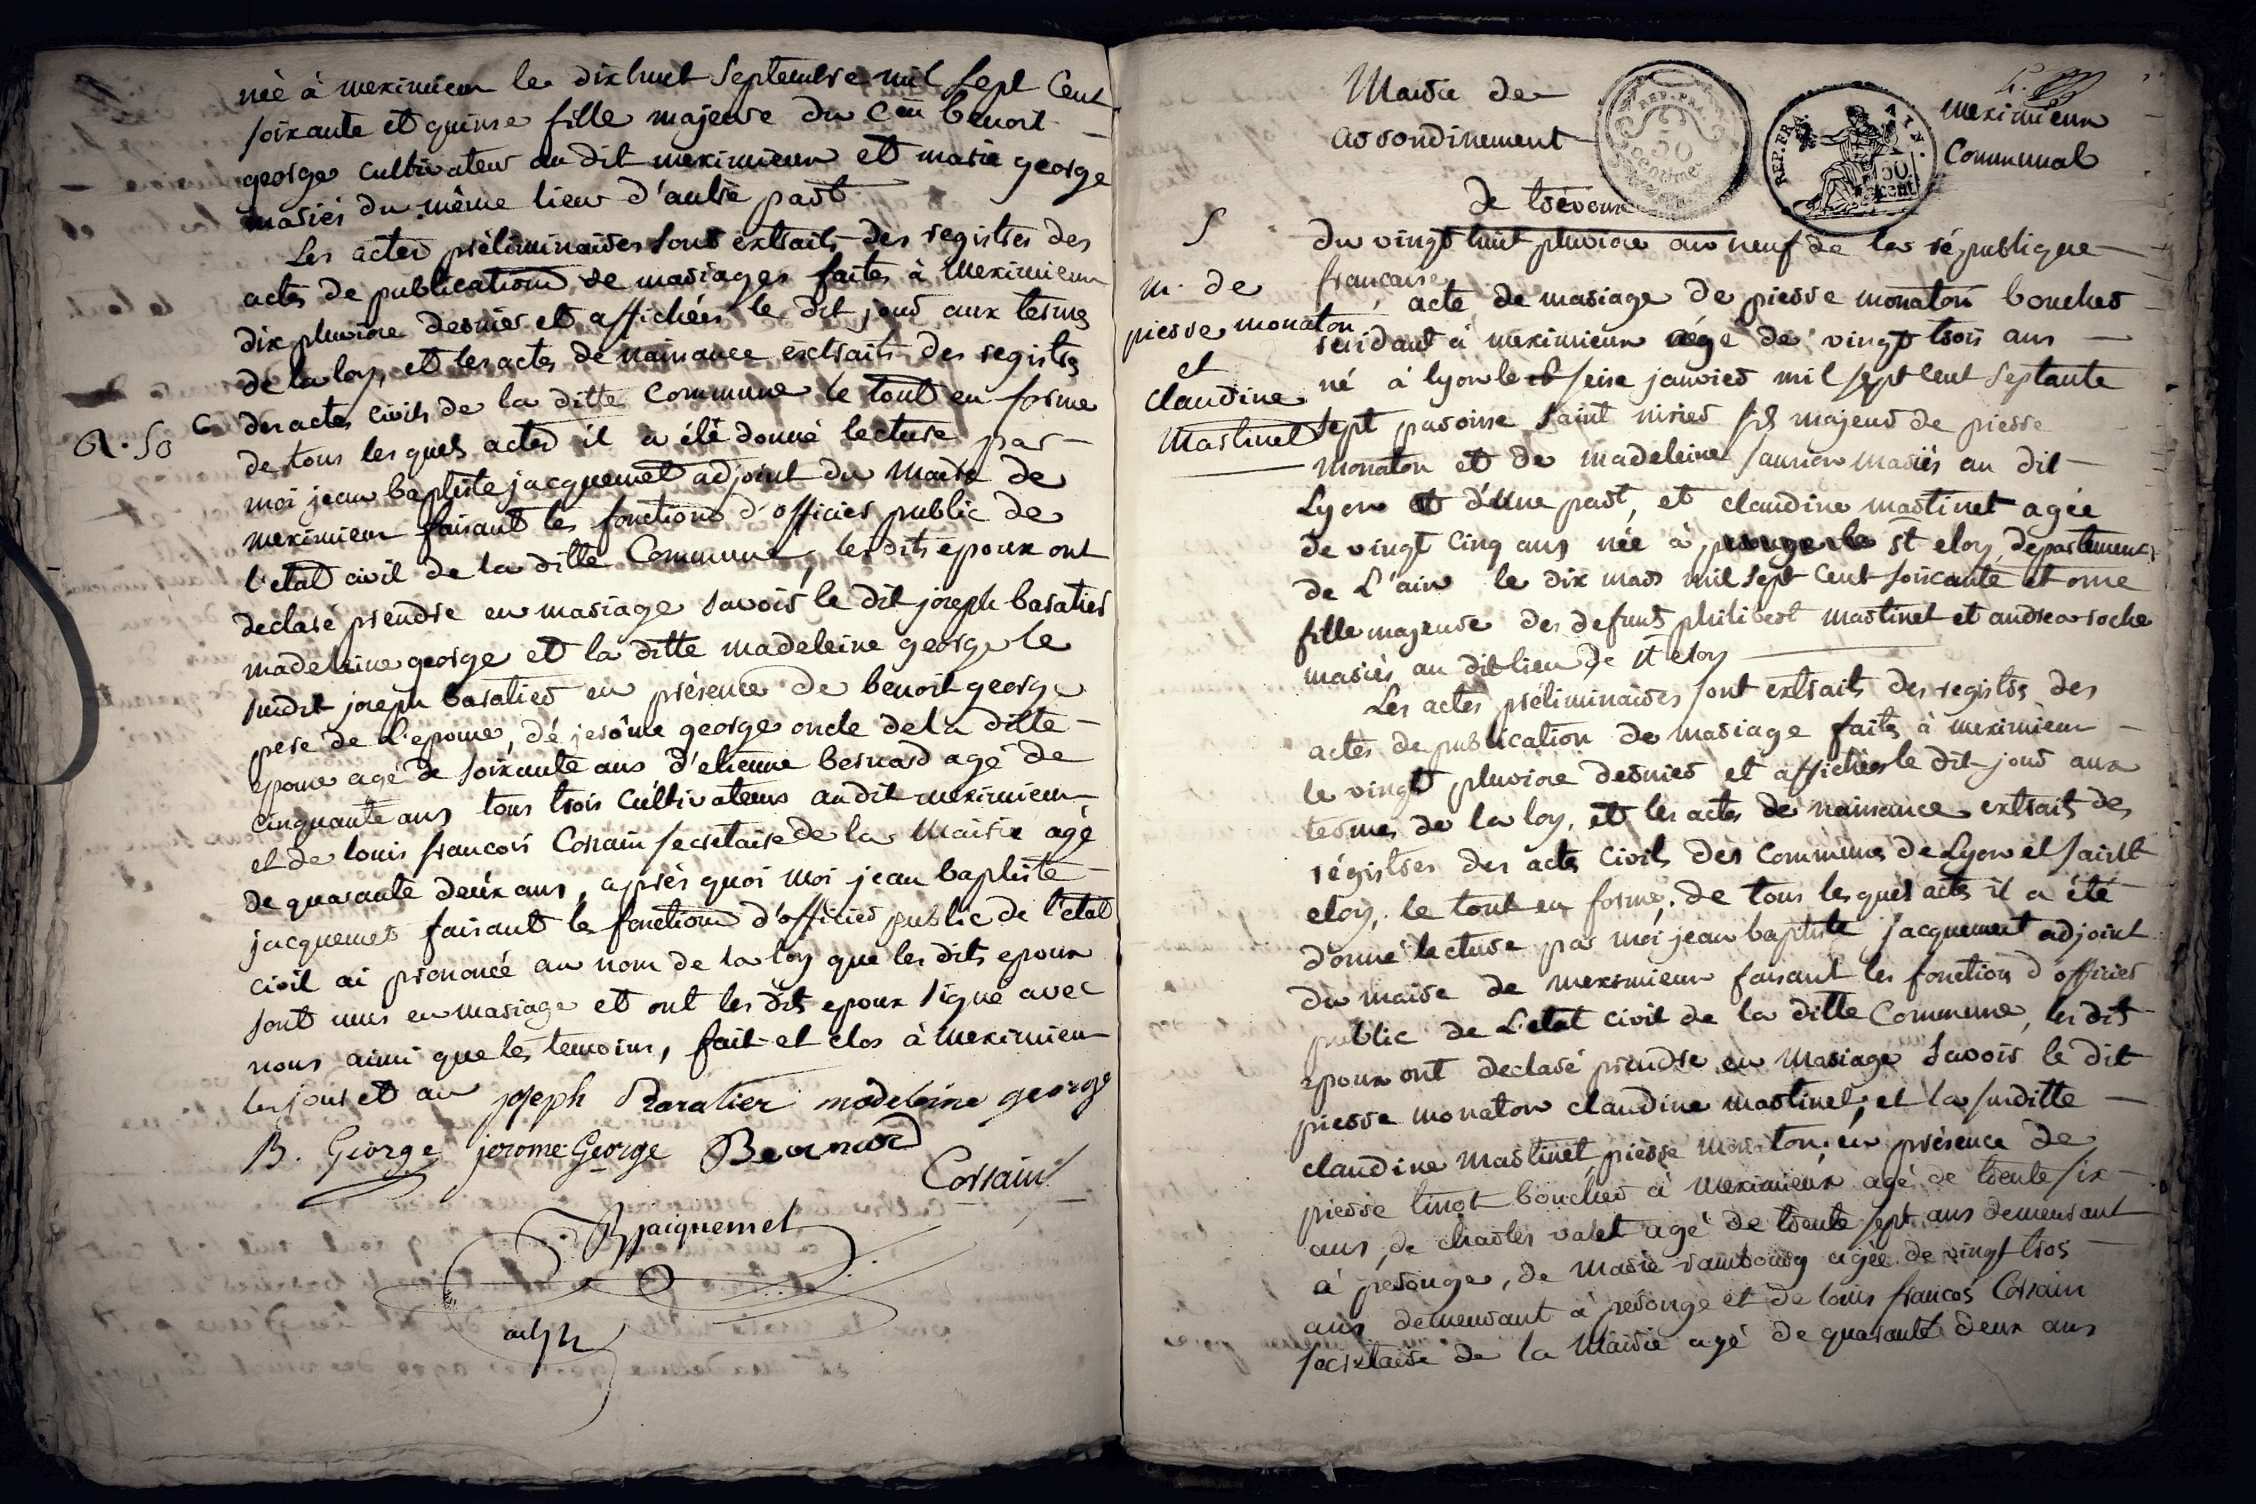 née à meximieux le dixhuit Septembre mil Sept Cent
soixante et quinse fille majeure du Cen benoit
george cultivateur au dit meximieux et marie george
mariés du même lieu d'autre part
Les actes préliminaires sont extraits des registres des
actes de publications de mariages faites à Meximieux
dix pluviose dernier et affichées le dit jour aux termes
de la loy, et les actes de naissance extraits des registres
des actes civils de la ditte Commune le tout en forme
R. So
de tous lesquels actes il a été donné lecture par
moi jean baptiste jacquemet adjoint du Maire de
meximieux faisant les fonctions d'officier public de
l'etat civil de la ditte Commune, les dits epoux ont
declaré prendre en mariage savoir le dit joseph baratier
madeleine george et la ditte madeleine george le
susdit joseph baratier en présence de benoit george
pere de l'epouse, de jerôme george oncle de la ditte
epouse agé de soixante ans d'etienne bernard agé de
cinquante ans tous trois cultivateurs audit meximieux
et de louis francois Corrain secretaire de la Mairie agé
de quarante deux ans, après quoi moi jean baptiste
jacquemet faisant les fonctions d'officier public de l'etat
civil ai prononcé au nom de la loy que les dits epoux
sont unis en mariage et ont les dits epoux signé avec
nous ainsi que les temoins, fait et clos à meximieux
les jour et an joseph Baratier madeleine george
B. George jerome George Bernard
Corrain
JB jacquemet
adjt
Mairie de
meximieux
arrondissement
Communal
de trévoux
REP. FRA.
50
centimes
REP. FRA.
ATN.
50
cent
S
m. de
pierre monaton
et
claudine
Martinet
du vingt huit pluviose an neuf de la république
francaise
acte de mariage de pierre monaton boucher
residant à meximieux agé de vingt trois ans
né à lyon le seise janvier mil sept cent septante
sept paroisse saint nisier fils majeur de pierre
monaton et de madeleine mariés au dit
Lyon d'une part, et claudine martinet agée
de vingt cinq ans née à st eloy, departement
de L'ain le dix mars mil sept cent soixante et onse
fille majeure des defunts philibert martinet et andrea roche
mariés au dit lieu de st eloy
Les actes préliminaires sont extraits des registres des
actes de publication de mariage faits à meximieux
le vingt pluviose dernier et affichés le dit jour aux
termes de la loy, et les actes de naissance extraits des
régistres des actes civils des communes de Lyon et saint
eloy, le tout en forme; de tous lesquels actes il a été
donné lecture par moi jean baptiste jacquemet adjoint
du maire de meximieux faisant les fonction d'officier
public de L'etat civil de la ditte Commune, les dits
epoux ont declaré prendre en mariage savoir le dit
pierre monaton claudine martinet, et la susditte
claudine martinet pierre monaton, en présence de
pierre tinot boucher à meximieux agé de trente six
ans, de charles valet agé de trente sept ans demeurant
à perouge, de marie rambourg agée de vingt trois
ans demeurant à perouge et de louis francois Corrain
secretaire de la Mairie agé de quarante deux ans